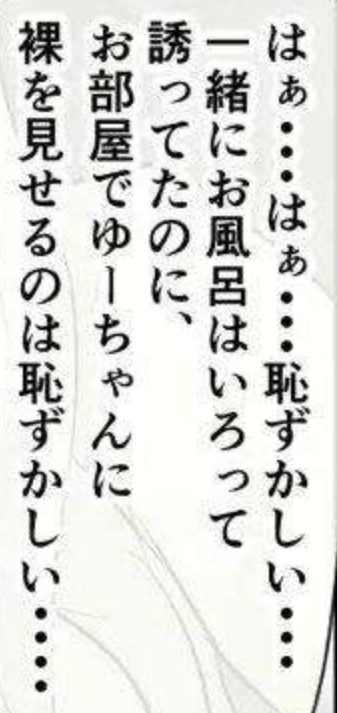 はぁ・・・はぁ・・・恥ずかしい・・・
一緒にお風呂はいろって
誘ってたのに、
お部屋でゆーちゃんに
裸を見せるのは恥ずかしい・・・・